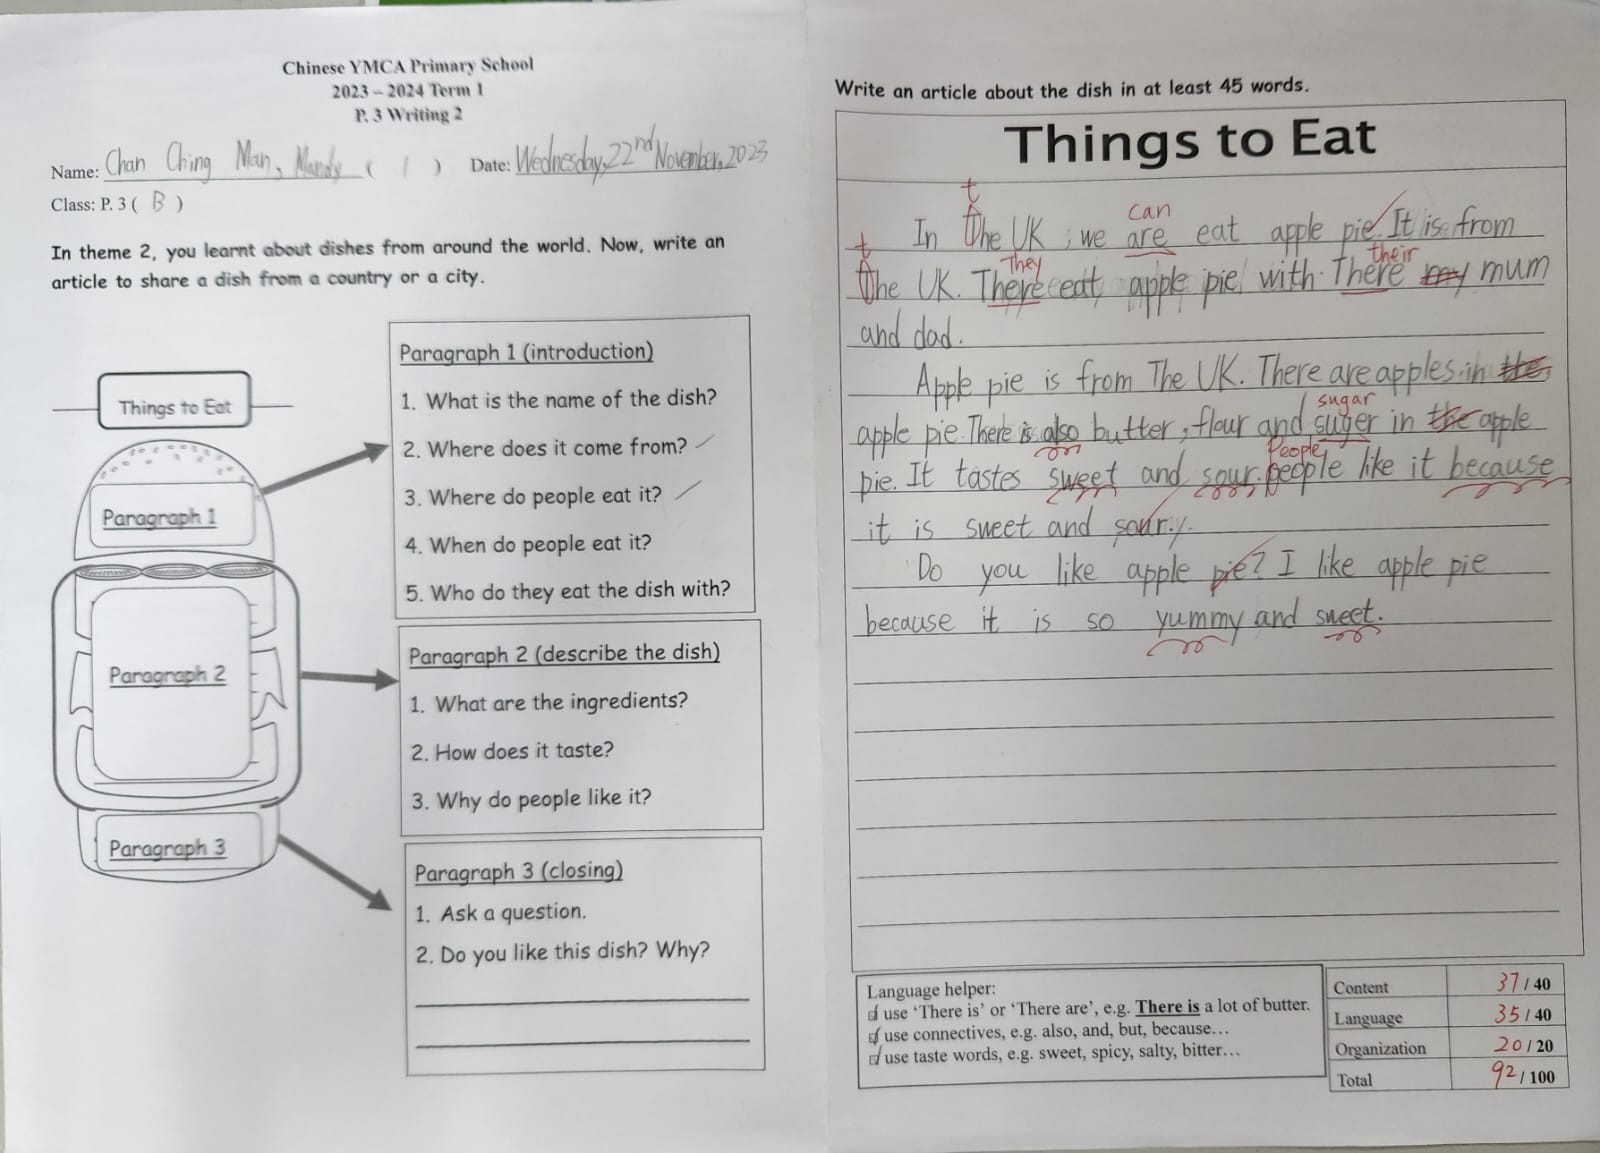 Chinese YMCA Primary School
2023 – 2024 Term 1
P. 3 Writing 2
Name: Chan Ching Man, Mandy ( 1 ) Date: Wednesday, 22nd November, 2023
Class: P. 3 ( B )
In theme 2, you learnt about dishes from around the world. Now, write an
article to share a dish from a country or a city.
Things to Eat
Paragraph 1
Paragraph 2
Paragraph 3
Paragraph 1 (introduction)
1. What is the name of the dish?
2. Where does it come from?
3. Where do people eat it?
4. When do people eat it?
5. Who do they eat the dish with?
Paragraph 2 (describe the dish)
1. What are the ingredients?
2. How does it taste?
3. Why do people like it?
Paragraph 3 (closing)
1. Ask a question.
2. Do you like this dish? Why?
Write an article about the dish in at least 45 words.
Things to Eat
t
can
In The UK , we are eat apple pie. It is from
t They their
The UK. There eat apple pie with There my mum
and dad.
Apple pie is from The UK. There are apples in the
sugar
apple pie. There is also butter, flour and suger in the apple
People
pie. It tastes sweet and sour. people like it because
it is sweet and sour.
Do you like apple pie? I like apple pie
because it is so yummy and sweet.
Language helper:
use 'There is' or 'There are', e.g. There is a lot of butter.
use connectives, e.g. also, and, but, because…
use taste words, e.g. sweet, spicy, salty, bitter…
Content 37 / 40
Language 35 / 40
Organization 20 / 20
Total 92 / 100